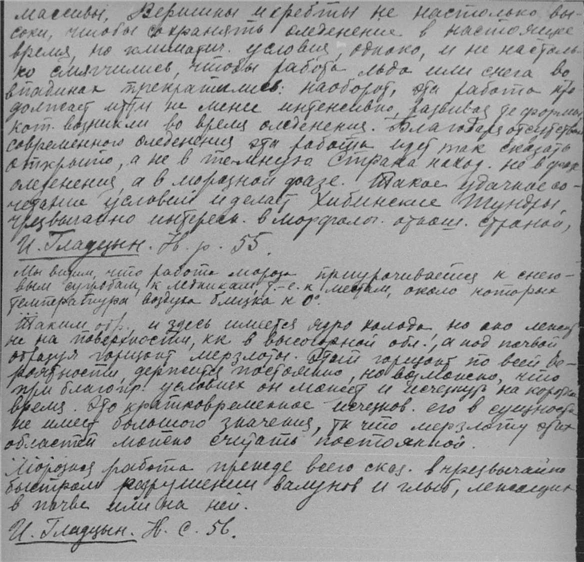 массивы, Вершины и хребты не настолько вы
соки, чтобы сохранять оледенение в настоящее
время, но климатич. условия, однако, и не настоль
ко смягчились, чтобы работа льда или снега во
впадинах прекратились; наоборот, эта работа про
должает итти не менее интенсивно, развивая те формы,
кот. возникли во время оледенения. Благодаря отсутствию
современного оледенения эта работа идет так сказать
открыто, а не в темную. Страна наход. не в фазе
оледенения, а в морозной фазе. Такое удачное со
четание условий и делает Хибинские Тундры
чрезвычайно интересн. в морфолог. отнош. страной,
И. Гладцын. Н. р. 55.
Мы видим, что работа мороза приурочивается к снего
вым сугробам, к ледникам, т.-е. к местам, около которых
температура воздуха близка к 0°.
Таким обр., и здесь имеется ядро холода, но оно лежит
не на поверхности, как в высокогорной обл., а под почвой
образуя горизонт мерзлоты. Этот горизонт по всей ве-
роятности держится постоянно, но возможно, что
при благопр. условиях он может и исчезнуть на короткое
время. Это кратковременное исчезнов. его в сущности
не имеет большого значения, так что мерзлоту этих
областей можно считать постоянной.
Морозная работа прежде всего сказ. в чрезвычайно
быстром разрушении валунов и глыб, лежащих
в почве или на ней.
И. Гладцын. Н. С. 56.